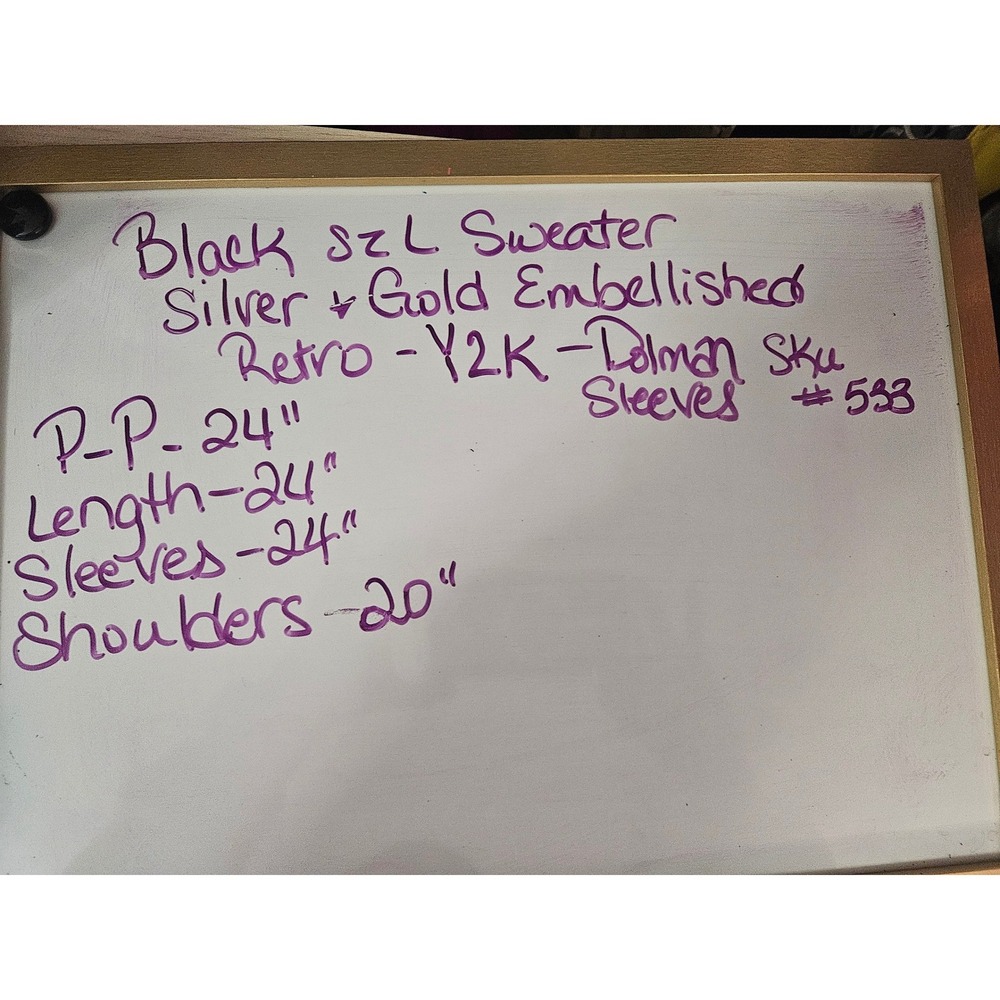 Black sz L Sweater
Silver + Gold Embellished
Retro - Y2K - Dolman Sku
Sleeves # 533
P-P- 24"
Length-24"
Sleeves-24"
Shoulders-20"